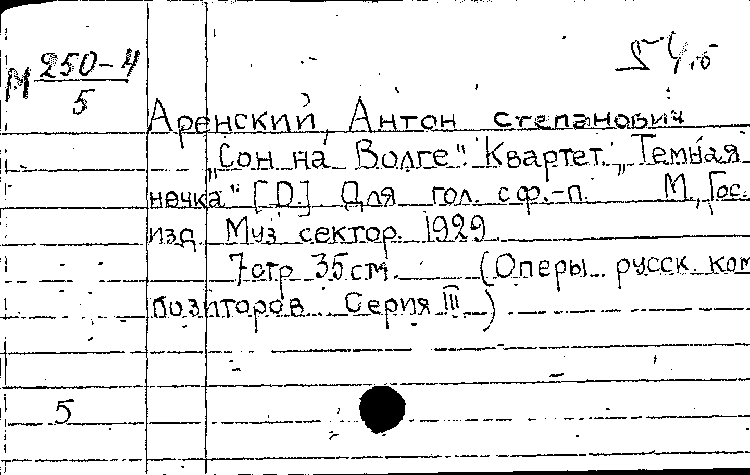 М 250-4
5
54.б
Аренский, Антон Степанович
„Сон на Волге". Квартет. „Темная
нечка" [D.] Для гол. с ф.-п. М., Гос.
изд. Муз сектор. 1929.
7 стр 35 см. (Оперы русск. ком
позиторов. Серия III)
5